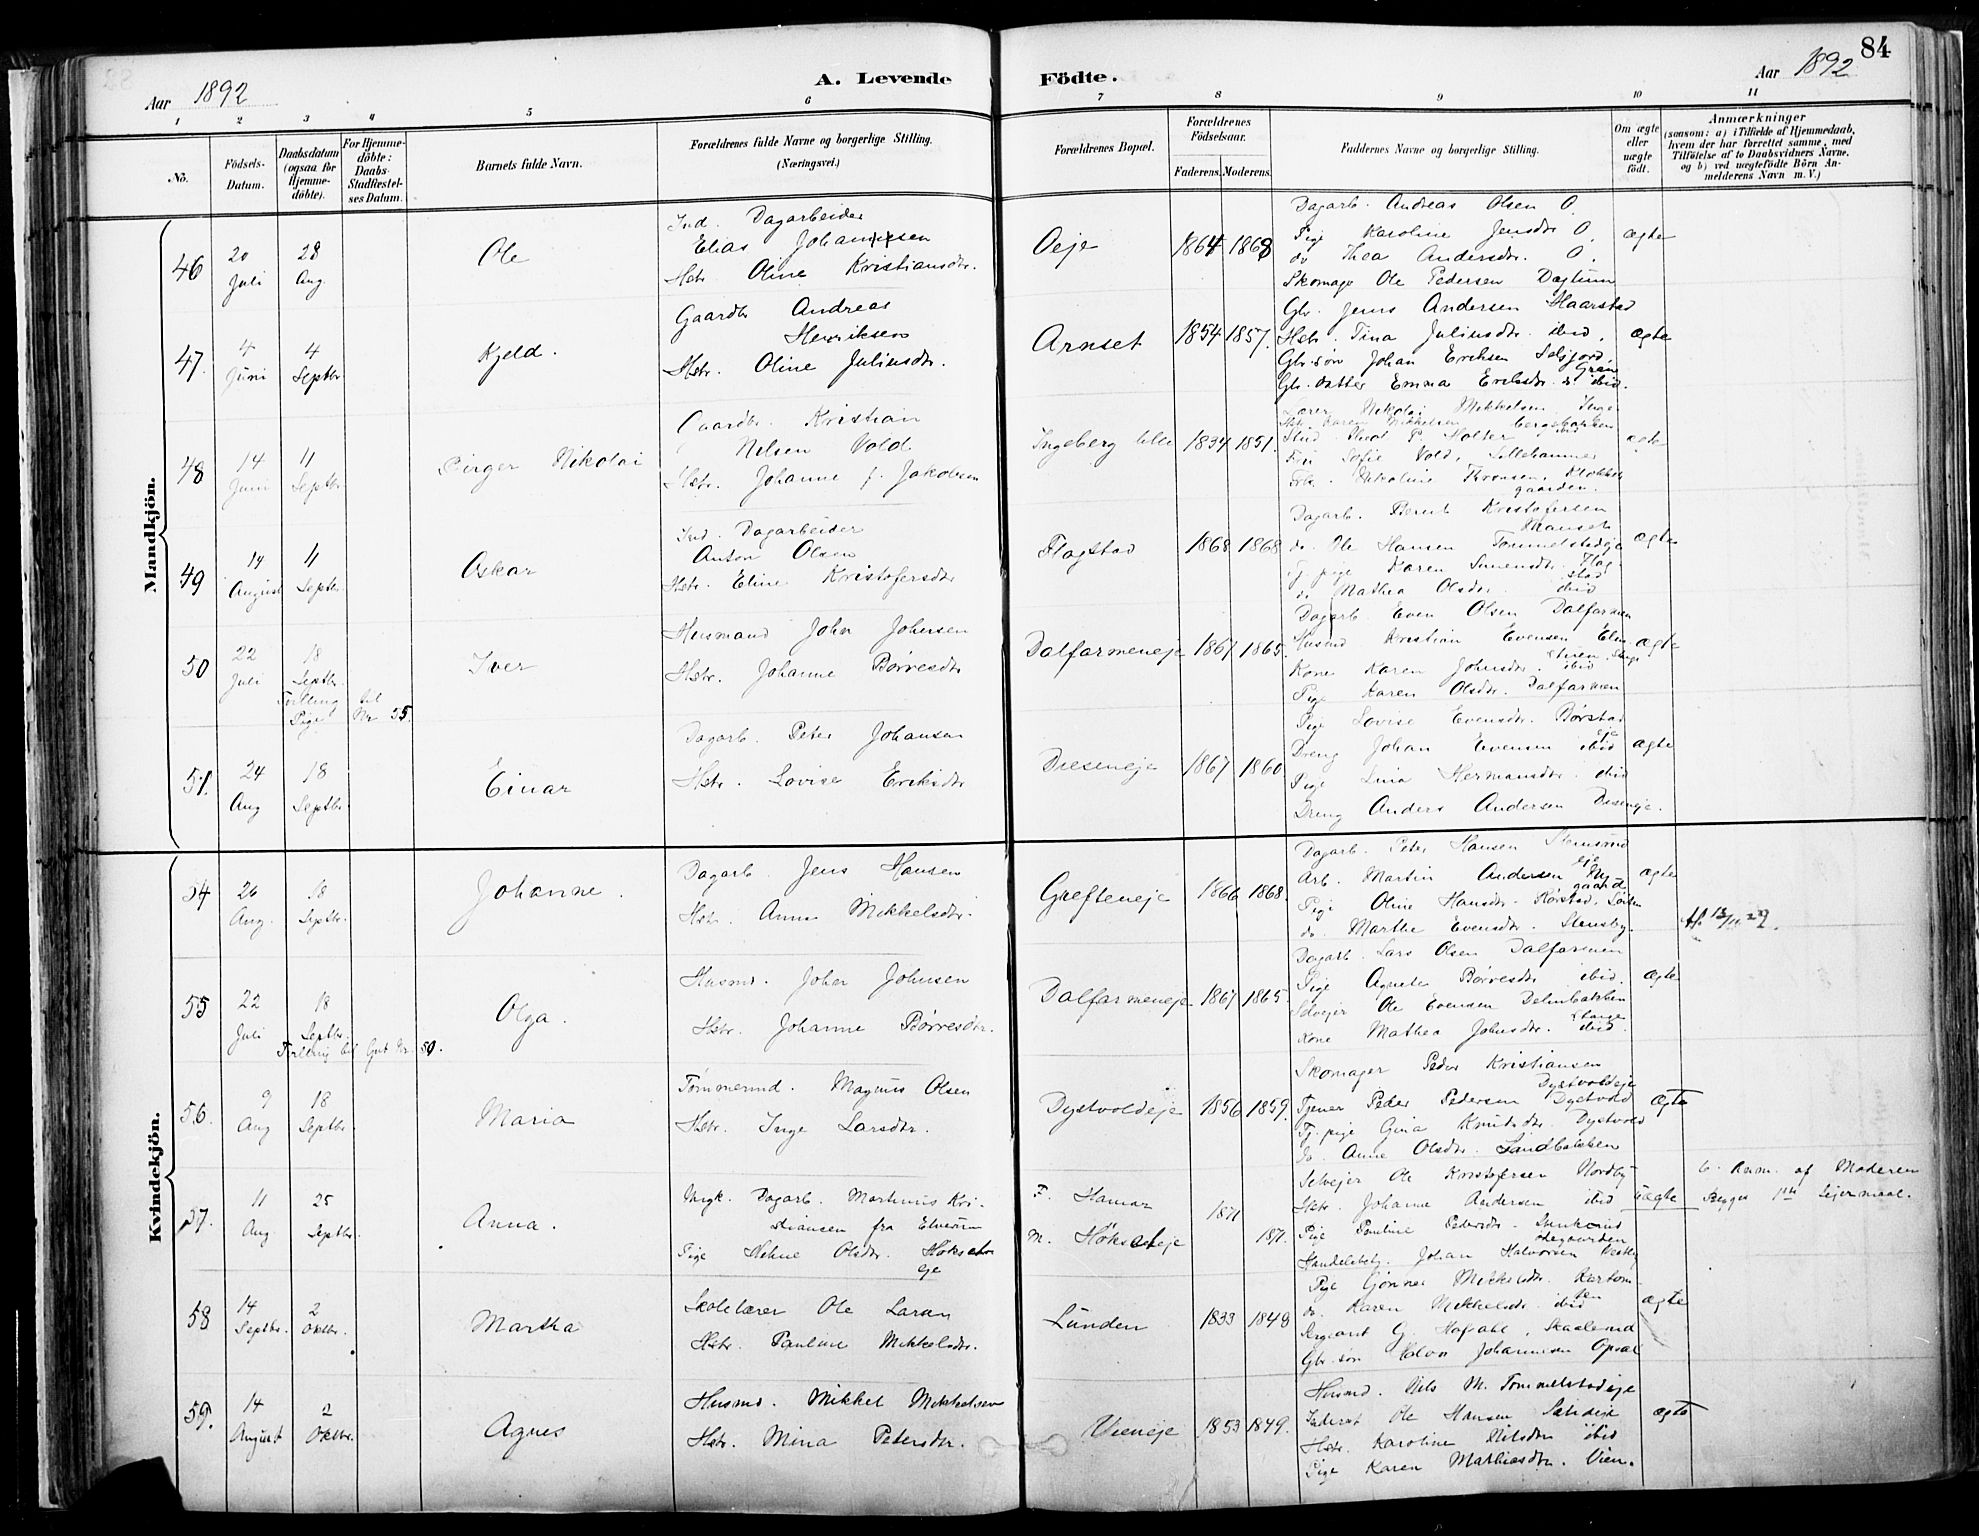 84
Aar 1892
A. Levende
Födte.
Aar 1892
1 2 3 4 5 6 7 8 9 10 11
No.
Födsels-Datum.
Daabsdatum (ogsaa for Hjemme-döbte).
For Hjemme-döbte: Daabs-Stadfæstel-ses Datum.
Barnets fulde Navn.
Forældrenes fulde Navne og borgerlige Stilling.
(Næringsvei.)
Forældrenes Bopæl.
Forældrenes Födselsaar.
Faderens. Moderens.
Faddernes Navne og borgerlige Stilling.
Om ægte eller uægte födt.
Anmærkninger
(saasom: a) i Tilfælde af Hjemmedaab, hvem der har forrettet samme, med Tilföielse af to Daabsvidners Navne. og b) ved uægtefödte Börn An-melderens Navn m. V.)
Mandkjön.
46
20 Juli
28 Aug.
Ole
Ind. Dagarbeider
Elias Johannesen
Hstr. Oline Kristiansdtr.
Oeje
1864 1868
Dagarb. Andreas Olsen O.
Pige Karoline Jensdtr O.
do Thea Andersdtr. O.
Skomager Ole Pedersen Dæhlum
ægte
47.
4 Juni
4 Septbr
Kjeld.
Gaardbr Andreas
Henriksen
Hstr. Oline Juliusdtr.
Arnset
1854 1857.
Gbr. Jens Andersen Haarstad
Hstr. Tina Juliusdtr. ibid.
Gbr.søn Johan Eriksen
Gbr.datter Emma Eriksdtr. ibid.
ægte
48
14 Juni
11 Septbr
Birger Nikolai
Gaardbr. Kristian
Nilsen Vold
Hstr. Johanne f. Jakobsen
Ingeberg lille
1834 1851.
Lærer Nikolai Mikkelsen Inge-
Hstr. Karen Mikkelsen bergbakken
Stud. theol P. Holter ibid
Frk. Sofie Vold, Lillehammer
Frk. Nikoline Evensen, Klokker
gaarden.
ægte
49
14 August
11 Septbr
Oskar
Ind. Dagarbeider
Anton Olsen
Hstr. Eline Kristofersdtr
Flagstad
1868 1868
Dagarb. Bernt Kristofersen
do. Ole Hansen Tommelstadeje
Tj. pige Karen Simensdtr. Flag-
stad
do Mathea Olsdtr. ibid
ægte
50
22 Juli
18 Septbr.
Tvilling til
Pige Nr 55.
Iver
Husmand Johan Johnsen
Hstr. Johanne Børresdtr
Dalfarmeneje
1867 1865.
Dagarb. Even Olsen Dalfarmen
Husmd Kristian Evensen
Kone Karen Johnsdtr. ibid
Pige Karen Olsdtr. Dalfarmen
ægte
51.
24 Aug
18 Septbr
Einar
Dagarb. Peter Johansen
Hstr. Lovise Eriksdtr
Diseneje
1867 1860
Pige Lovise Evensdtr. Børstad
eje
Dreng Johan Evensen ibid
Pige Lina Hermansdtr. ibid
Dreng Anders Andersen Diseneje.
ægte
Kvindekjön.
54
26 Aug.
18 Septbr.
Johanne.
Dagarb. Jens Hansen
Hstr. Anne Mikkelsdtr.
Grefteneje
1866 1868.
Dagarb. Peter Hansen Stensrud
eje
Arb. Martin Andersen Ny
gaard
Pige Oline Hansdtr. Rørstad, Løiten
do. Marthe Evensdtr. Stensby.
ægte
55
22 Juli
18 Septbr.
Tvilling til Gut Nr. 50.
Olga.
Husmd. Johan Johnsen
Hstr. Johanne Børresdtr.
Dalfarmeneje
1867 1865.
Dagarb. Lars Olsen Dalfarmen
Pige Agnete Børresdtr ibid.
Selvejer Ole Evensen
Stange
Kone Mathea Johnsdtr. ibid.
ægte
56.
9 Aug
18 Septbr.
Maria
Tømmermd. Magnus Olsen
Hstr. Inge Larsdtr.
Dystvoldeje
1856 1859.
Skomager Peder Kristiansen
Dystvoldeje
Tjener Peder Pedersen Dystvold
Tj. pige Gina Knutsdtr. Dystvold
do. Anne Olsdtr. Sandbakken
ægte
57.
11 Aug
25 Septbr.
Anna.
Ungk. Dagarb. Martinus Kri-
stiansen fra Elverum
Pige Helene Olsdtr. Høksæt
eje
F. Hamar
M. Høksæteje
1871
1871.
Selvejer Ole Kristofersen Nordby
Hstr. Johanne Andersen ibid
Pige Pauline Pedersdtr.
Handelsbetj. Johan Halvorsen
uægte
b. Anm. af Moderen
Begges 1ste Lejermaal.
58
14 Septbr.
2 Oktbr.
Martha
Skolelærer Ole Larsen
Hstr. Pauline Mikkelsdtr.
Lunden
1833 1849
Pige Gjønne Mikkelsdtr.
do. Karen Mikkelsdtr. ibid
Sergeant G. Hofdahl, Skaalerud
Gbr.søn Halvor Johannesen Opsal
ægte
59.
14 August
2 Oktbr.
Agnes
Husmd. Mikkel Mikkelsen
Hstr. Mina Petersdtr.
Vieneje
1853 1849.
Husmd. Nils M. Tommelstadeje
Inderst Ole Hansen
Hstr. Karoline Nilsdtr ibid
Pige Karen Mathiasdtr. Vien.
ægte